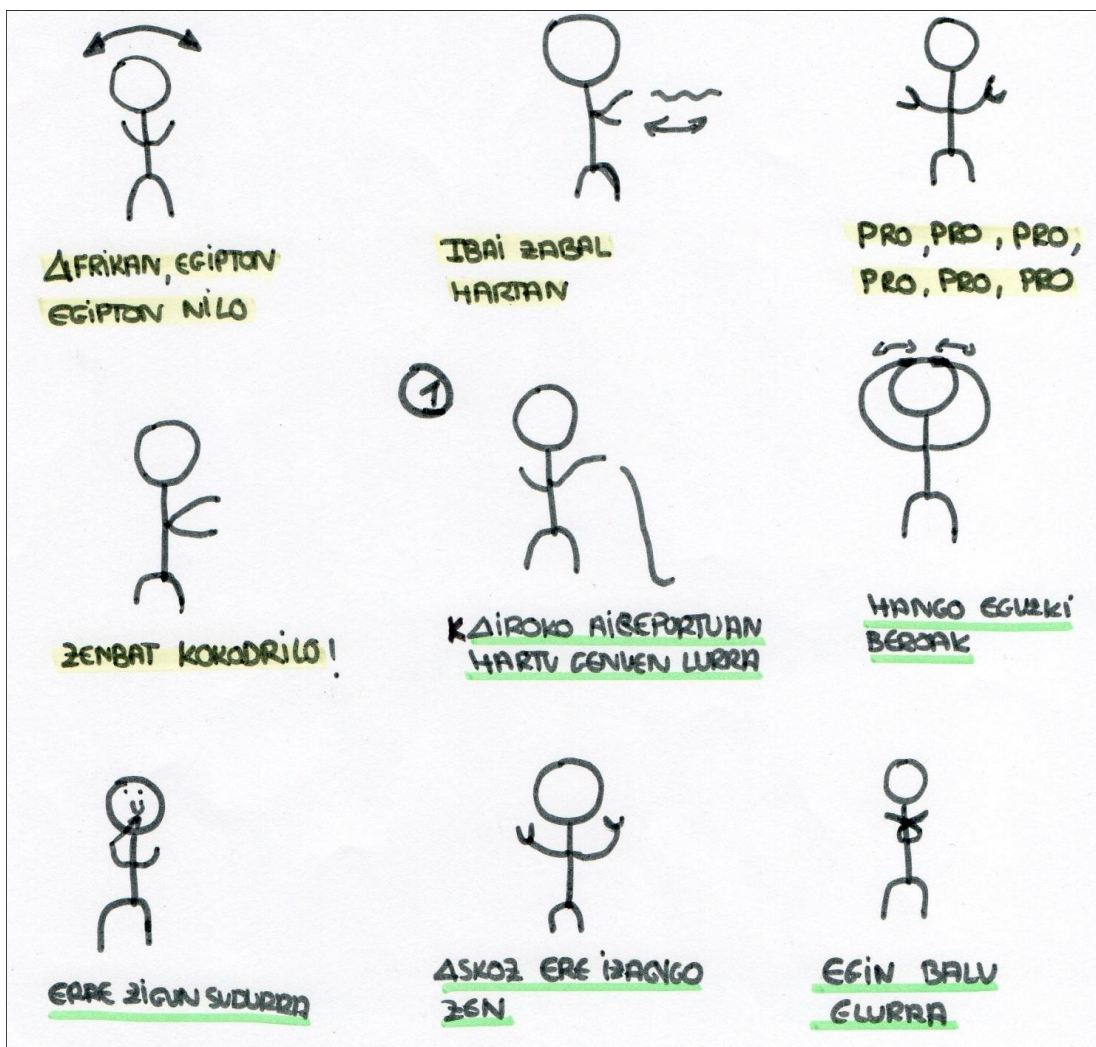 AFRIKAN, EGIPTON
EGIPTON NILO
IBAI ZABAL
HARTAN
PRO, PRO, PRO,
PRO, PRO, PRO
ZENBAT KOKODRILO!
1
KAIROKO AIREPORTUAN
HARTU GENUEN LURRA
HANGO EGUZKI
BEROAK
ERRE ZIGUN SUDURRA
ASKOZ ERE
ZEN
EGIN BALU
ELURRA